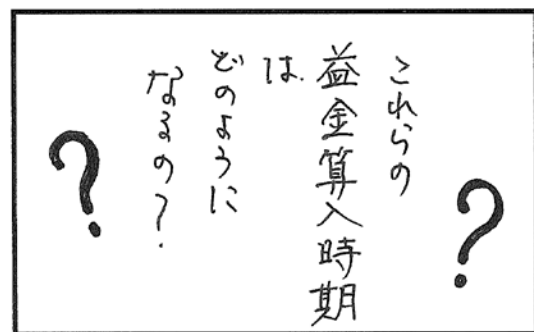 ？
これらの
益金算入時期
は
どのように
なるの？
？